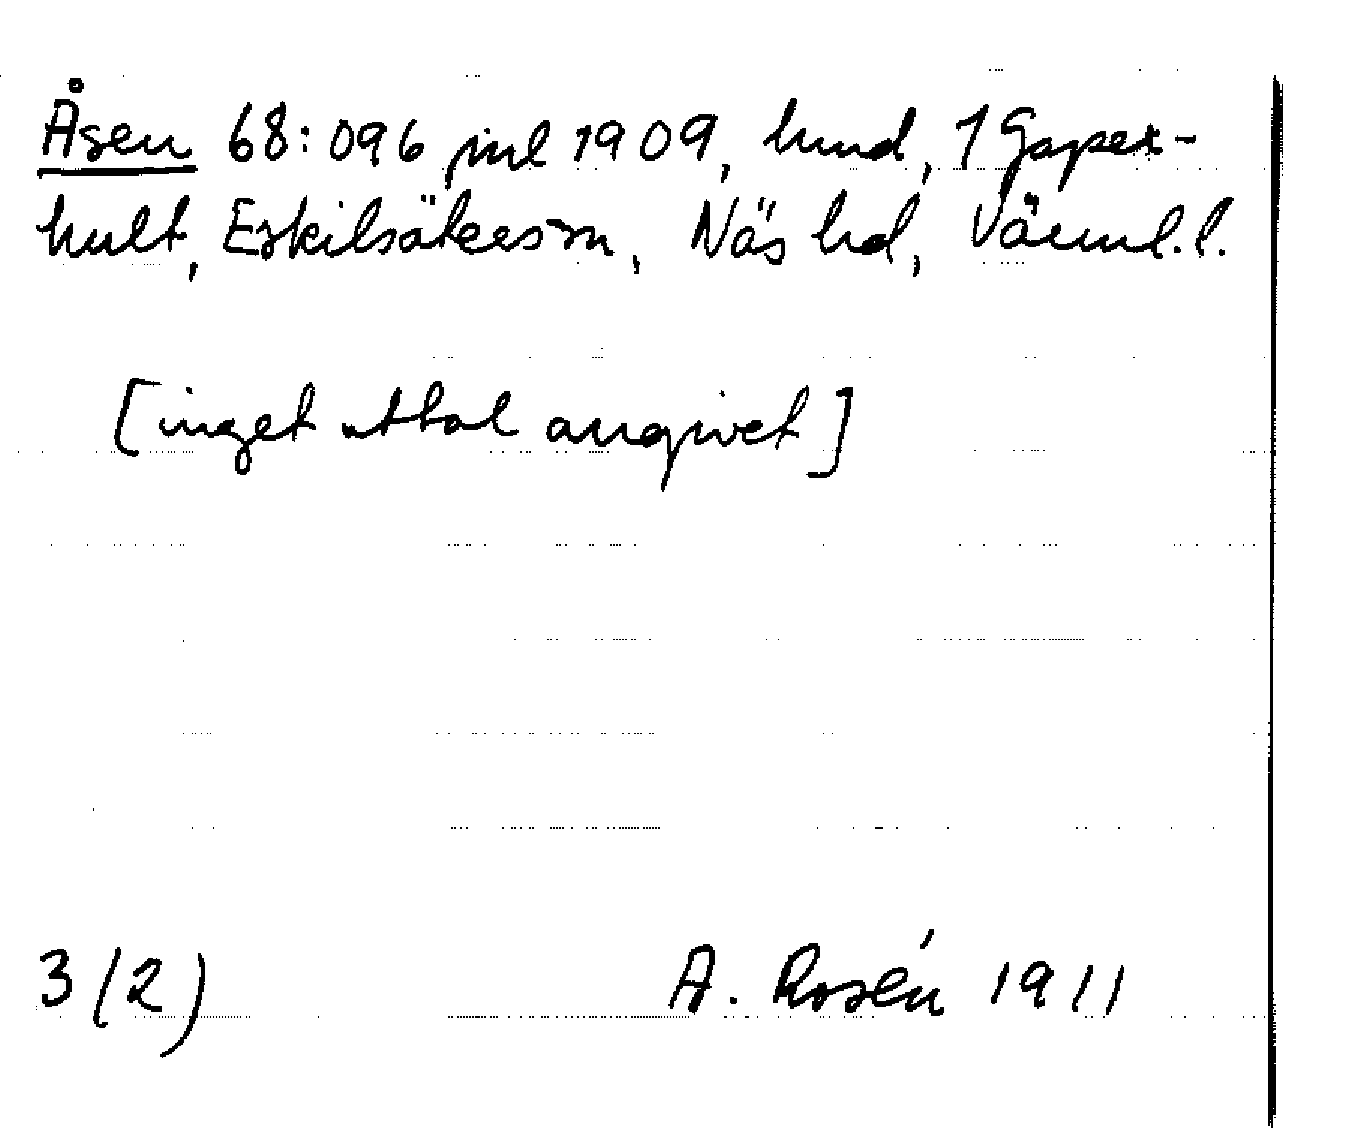 Åsen 68:096 jml 1909, hmd, 1 Gaper-
hult, Eskilsäters sn, Näs hd, Värml.l.
[inget uttal angivet]
3(2) A. Rosén 1911